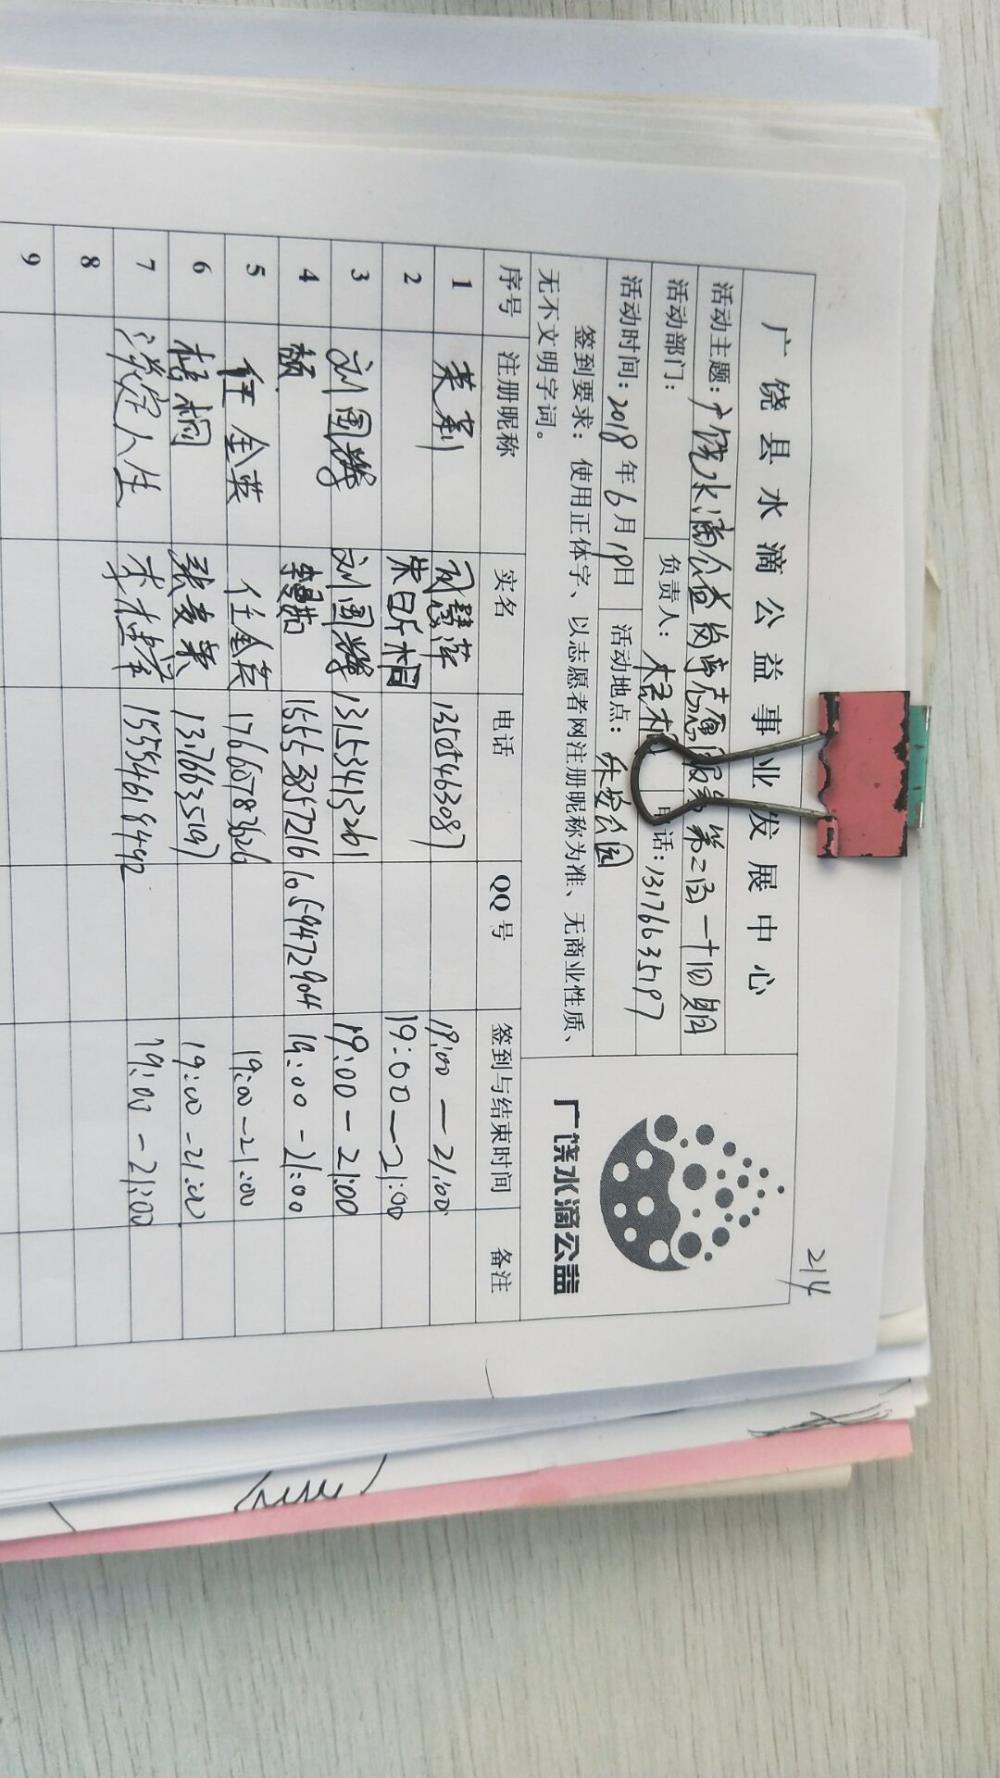 214
广饶县水滴公益事业发展中心
活动主题：广饶水滴公益岗亭志愿服务第二百一十四期
活动部门： 负责人：梧桐 电话：13176635197
活动时间：2018年6月19日 活动地点： 公园
签到要求：使用正体字、以志愿者网注册昵称为准、无商业性质、
无不文明字词。
广饶水滴公益
序号 注册昵称 实名 电话 QQ号 签到与结束时间 备注
1 茉莉 13505463087 19:00—21:00
2 19:00—21:00
3 刘国辉 刘国辉 13153413261 19:00-21:00
4 15553857216 1059472904 19:00-21:00
5 任金英 任金英 17660783626 19:00-21:00
6 梧桐 13176635197 19:00-21:00
7 淡定人生 15554618492 19:00-21:00
8
9